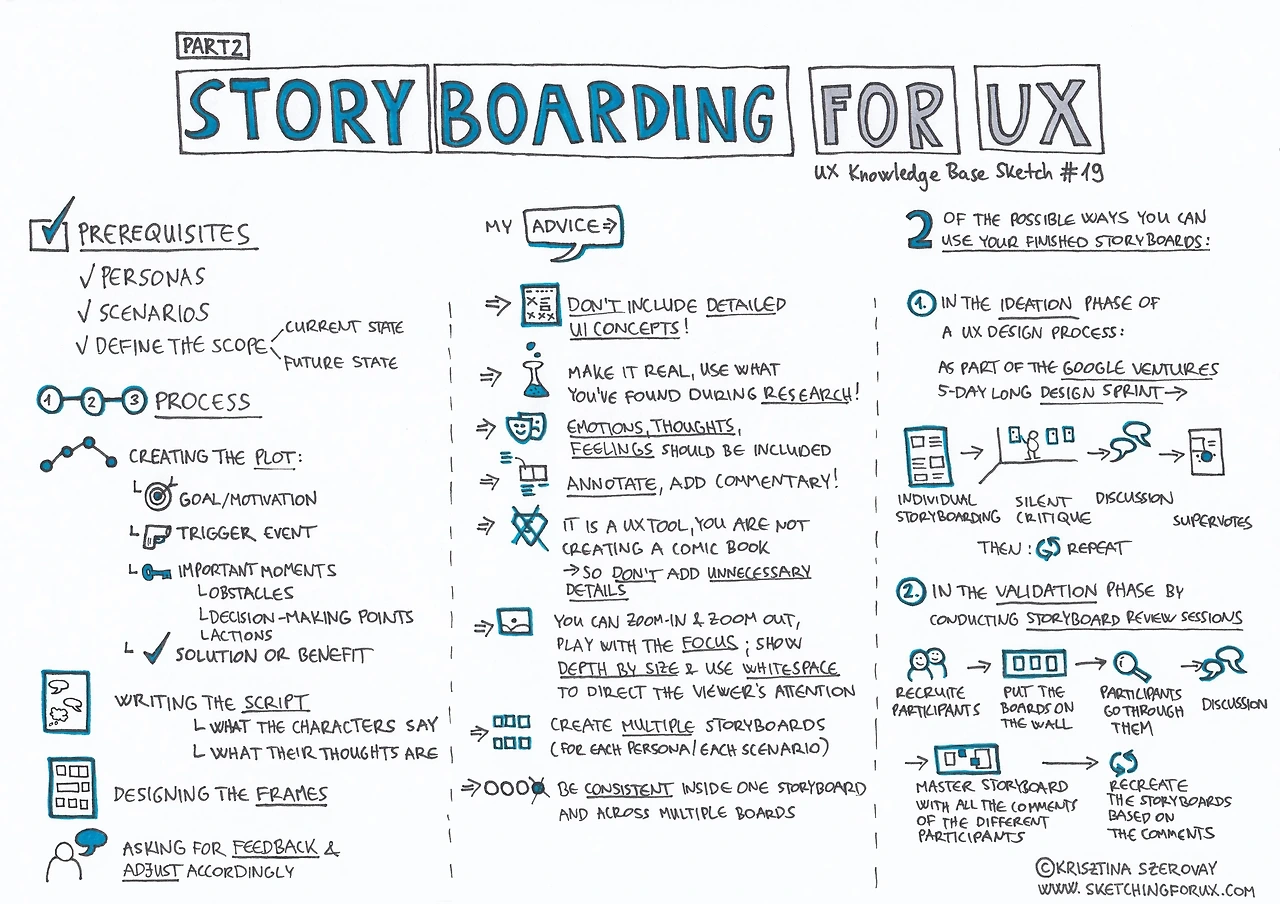 PART2
STORYBOARDING FOR UX
UX Knowledge Base Sketch #19
PREREQUISITES
√ PERSONAS
√ SCENARIOS
√ DEFINE THE SCOPE
CURRENT STATE
FUTURE STATE
1 2 3 PROCESS
CREATING THE PLOT:
GOAL/MOTIVATION
TRIGGER EVENT
IMPORTANT MOMENTS
OBSTACLES
DECISION-MAKING POINTS
ACTIONS
SOLUTION OR BENEFIT
WRITING THE SCRIPT
WHAT THE CHARACTERS SAY
WHAT THEIR THOUGHTS ARE
DESIGNING THE FRAMES
ASKING FOR FEEDBACK &
ADJUST ACCORDINGLY
MY ADVICE⇒
DON'T INCLUDE DETAILED
UI CONCEPTS!
MAKE IT REAL, USE WHAT
YOU'VE FOUND DURING RESEARCH!
EMOTIONS, THOUGHTS,
FEELINGS SHOULD BE INCLUDED
ANNOTATE, ADD COMMENTARY!
IT IS A UX TOOL, YOU ARE NOT
CREATING A COMIC BOOK
→SO DON'T ADD UNNECESSARY
DETAILS
YOU CAN ZOOM-IN & ZOOM OUT,
PLAY WITH THE FOCUS; SHOW
DEPTH BY SIZE & USE WHITESPACE
TO DIRECT THE VIEWER'S ATTENTION
CREATE MULTIPLE STORYBOARDS
(FOR EACH PERSONA/EACH SCENARIO)
BE CONSISTENT INSIDE ONE STORYBOARD
AND ACROSS MULTIPLE BOARDS
2 OF THE POSSIBLE WAYS YOU CAN
USE YOUR FINISHED STORYBOARDS:
1. IN THE IDEATION PHASE OF
A UX DESIGN PROCESS:
AS PART OF THE GOOGLE VENTURES
5-DAY LONG DESIGN SPRINT→
INDIVIDUAL
STORYBOARDING
SILENT
CRITIQUE
DISCUSSION
SUPERVOTES
THEN: REPEAT
2. IN THE VALIDATION PHASE BY
CONDUCTING STORYBOARD REVIEW SESSIONS
RECRUITE
PARTICIPANTS
PUT THE
BOARDS ON
THE WALL
PARTICIPANTS
GO THROUGH
THEM
DISCUSSION
MASTER STORYBOARD
WITH ALL THE COMMENTS
OF THE DIFFERENT
PARTICIPANTS
RECREATE
THE STORYBOARDS
BASED ON
THE COMMENTS
©KRISZTINA SZEROVAY
WWW.SKETCHINGFORUX.COM